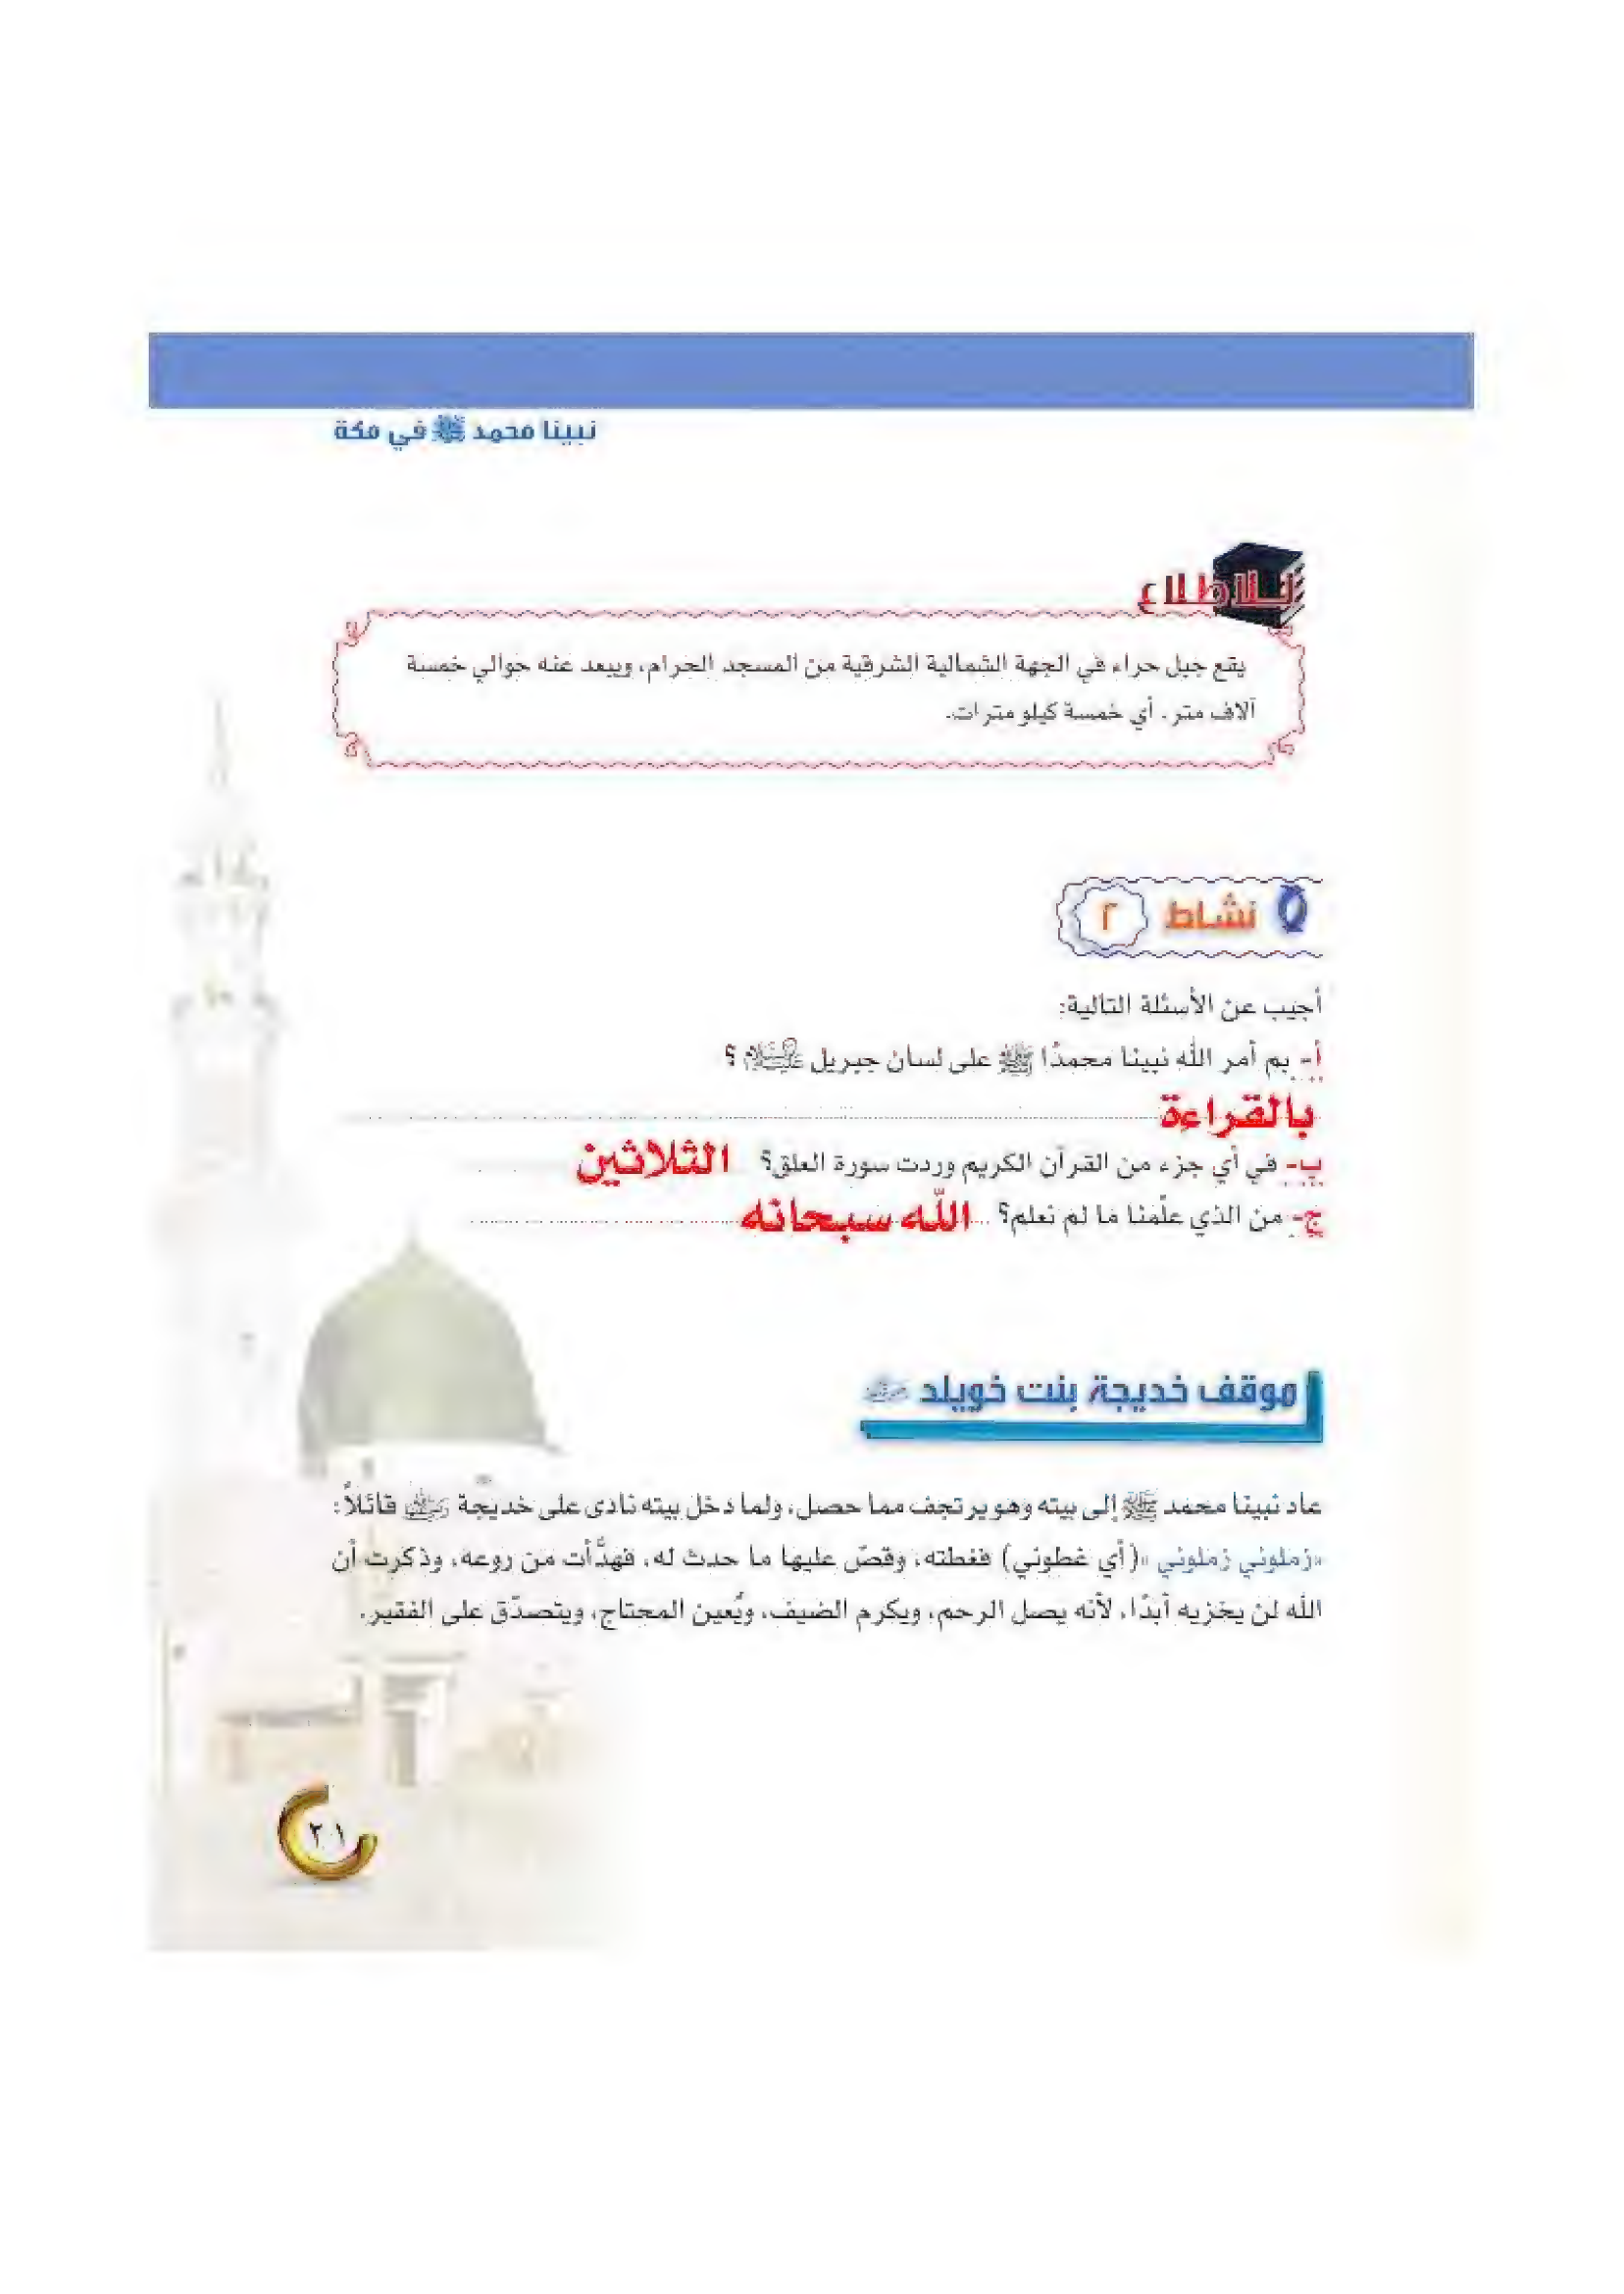 نبينا محمد ﷺ في مكة
للاطلاع
يقع جبل حراء في الجهة الشمالية الشرقية من المسجد الحرام، ويبعد عنه حوالي خمسة
آلاف متر. أي خمسة كيلو مترات.
نشاط ٢
أجيب عن الأسئلة التالية:
أ- بم أمر الله نبينا محمدًا ﷺ على لسان جبريل عليه السلام ؟
بالقراءة
ب- في أي جزء من القرآن الكريم وردت سورة العلق؟ الثلاثين
ج- من الذي علّمنا ما لم نعلم؟ الله سبحانه
موقف خديجة بنت خويلد رضي الله عنها
عاد نبينا محمد ﷺ إلى بيته وهو يرتجف مما حصل، ولما دخل بيته نادى على خديجة رضي الله عنها قائلاً:
«زملوني زملوني» (أي غطوني) فغطته، وقصّ عليها ما حدث له، فهدَّأت من روعه، وذكرت أن
الله لن يخزيه أبدًا، لأنه يصل الرحم، ويكرم الضيف، ويُعين المحتاج، ويتصدّق على الفقير.
٢٠١